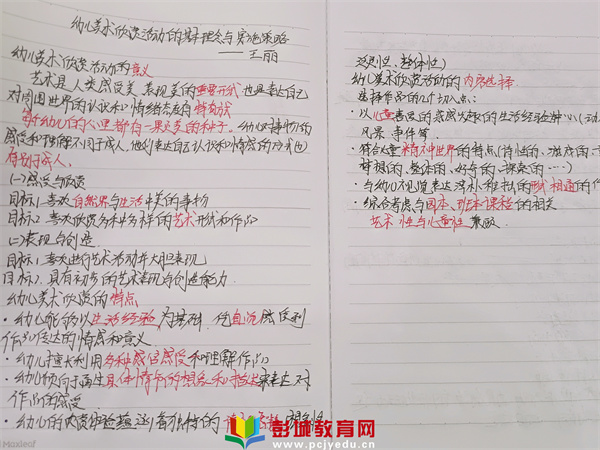 幼儿美术欣赏活动的基本理念与实施策略
——王丽
幼儿美术欣赏活动的意义
艺术是人类感受美、表现美的重要形式,也是表达自己
对周围世界的认识和情绪态度的
每个幼儿的心里都有一颗美的种子。幼儿对事物的
感受和理解不同于成人,他们表达自己认识和情感的方式也
有别于成人。
(一)感受与欣赏
目标1 喜欢自然界与生活中美的事物
目标2 喜欢欣赏多种多样的艺术形式和作品
(二)表现与创造
目标1 喜欢进行艺术活动并大胆表现
目标2 具有初步的艺术表现与创造能力
幼儿美术欣赏的特点
·幼儿能够以生活经验为基础,
作品传达的情感和意义
·幼儿擅长利用多种感官感受和理解作品
·幼儿倾向于
作品的感受
·幼儿的 独特的
整体性)
幼儿美术欣赏活动的内容选择
选择作品的几个切入点:
·以儿童喜爱的 的生活经验
风景、事件等
·符合儿童精神世界的特点(诗性的、游戏的、
梦想的、整体的、好奇的、探索的……)
·与幼儿视觉表达 的形式相通的作
·综合考虑与园本、班本课程的相关
艺术性与儿童性兼顾
Maxleaf
彭城教育网
www.pcjyedu.cn